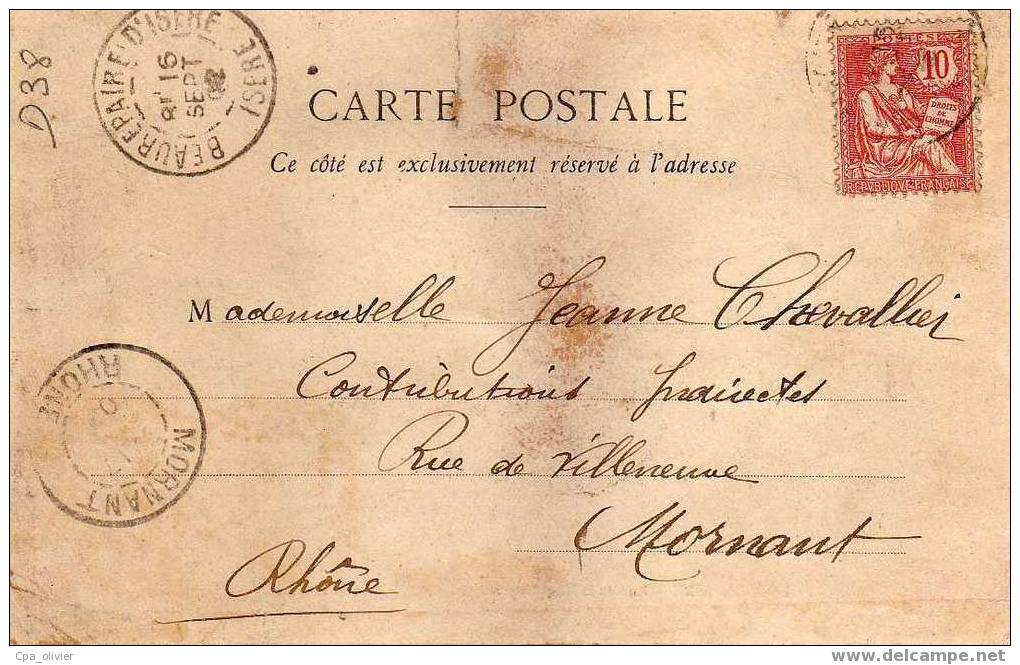 D38
BEAUREPAIRE D'ISERE (ISERE)
16
SEPT
02
POSTES
10
DROITS
DE
L'HOMME
REPUBLIQUE FRANÇAISE
CARTE POSTALE
Ce côté est exclusivement réservé à l'adresse
Mademoiselle Jeanne Chevallier
Contributions Indirectes
Rue de Villeneuve
Mornant
Rhône
MORNANT RHONE
Cpa_olivier
delcampe.net